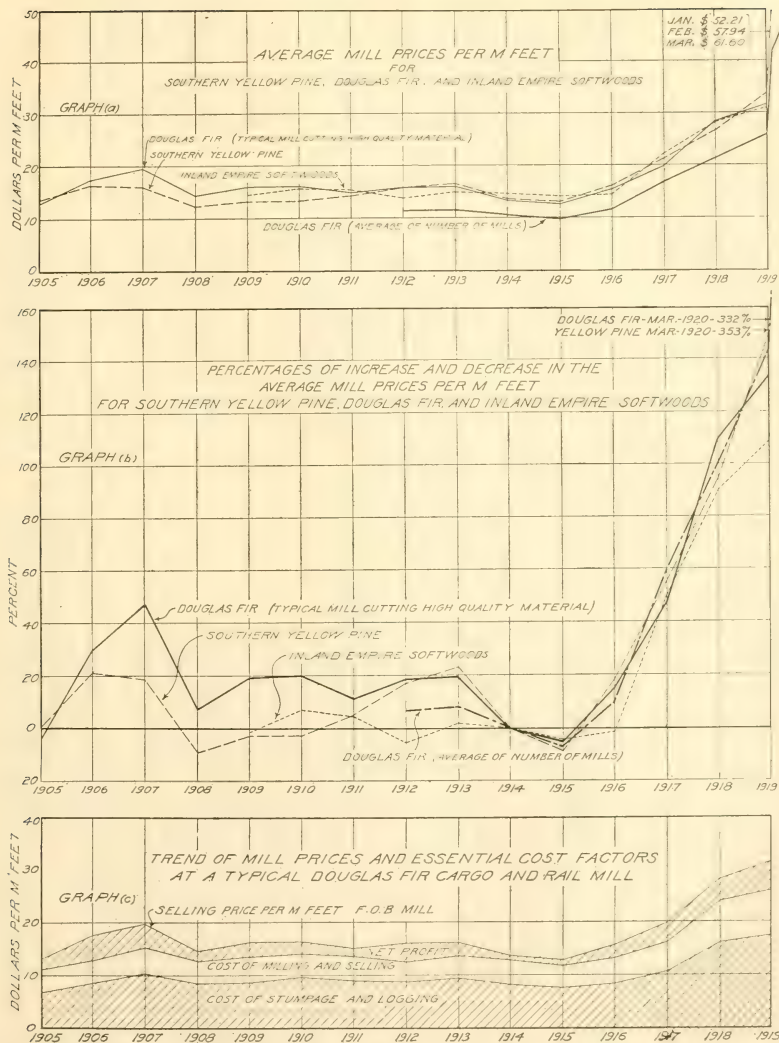 JAN. $ 52.21
FEB. $ 57.94
MAR. $ 61.60
AVERAGE MILL PRICES PER M FEET
FOR
SOUTHERN YELLOW PINE, DOUGLAS FIR, AND INLAND EMPIRE SOFTWOODS
GRAPH (a)
DOUGLAS FIR (TYPICAL MILL CUTTING HIGH QUALITY MATERIAL)
SOUTHERN YELLOW PINE
INLAND EMPIRE SOFTWOODS
DOUGLAS FIR (AVERAGE OF NUMBER OF MILLS)
DOLLARS PER M FEET
50
40
30
20
10
0
1905 1906 1907 1908 1909 1910 1911 1912 1913 1914 1915 1916 1917 1918 1919
DOUGLAS FIR-MAR.-1920-332%
YELLOW PINE MAR.-1920-353%
PERCENTAGES OF INCREASE AND DECREASE IN THE
AVERAGE MILL PRICES PER M FEET
FOR SOUTHERN YELLOW PINE, DOUGLAS FIR, AND INLAND EMPIRE SOFTWOODS
GRAPH (b)
DOUGLAS FIR (TYPICAL MILL CUTTING HIGH QUALITY MATERIAL)
SOUTHERN YELLOW PINE
INLAND EMPIRE SOFTWOODS
DOUGLAS FIR (AVERAGE OF NUMBER OF MILLS)
PERCENT
160
140
120
100
80
60
40
20
0
20
1905 1906 1907 1908 1909 1910 1911 1912 1913 1914 1915 1916 1917 1918 1919
TREND OF MILL PRICES AND ESSENTIAL COST FACTORS
AT A TYPICAL DOUGLAS FIR CARGO AND RAIL MILL
GRAPH (c)
SELLING PRICE PER M FEET F.O.B MILL
NET PROFIT
COST OF MILLING AND SELLING
COST OF STUMPAGE AND LOGGING
DOLLARS PER M FEET
40
30
20
10
0
1905 1906 1907 1908 1909 1910 1911 1912 1913 1914 1915 1916 1917 1918 1919